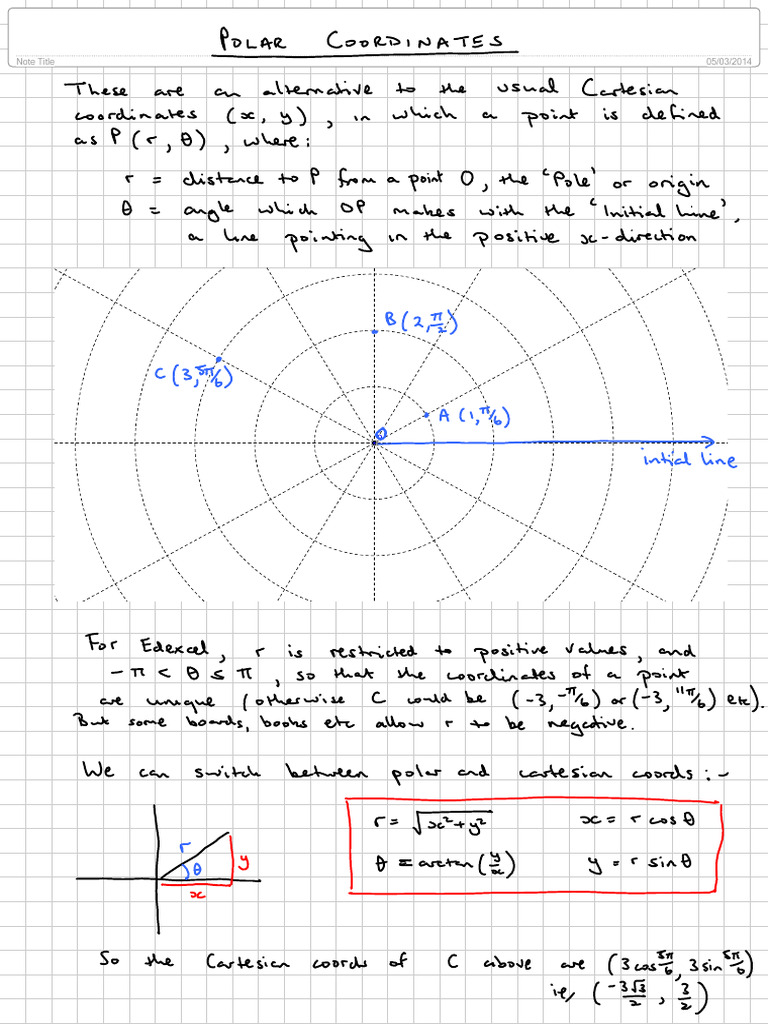 POLAR COORDINATES
Note Title
05/03/2014
These are an alternative to the usual Cartesian
coordinates (x, y), in which a point is defined
as P(r, θ), where:
r = distance to P from a point O, the 'Pole' or origin
θ = angle which OP makes with the 'Initial line',
a line pointing in the positive x-direction
B(2, π/2)
C(3, 5π/6)
A(1, π/6)
O
intial line
For Edexcel, r is restricted to positive values, and
-π < θ ≤ π, so that the coordinates of a point
are unique (otherwise C could be (-3, -π/6) or (-3, 11π/6) etc).
But some boards, books etc allow r to be negative.
We can switch between polar and cartesian coords:-
r = √(x²+y²) x = r cosθ
θ = arctan(y/x) y = r sinθ
r
θ
y
x
So the Cartesian coords of C above are (3cos 5π/6, 3sin 5π/6)
ie, (-3√3/2, 3/2)